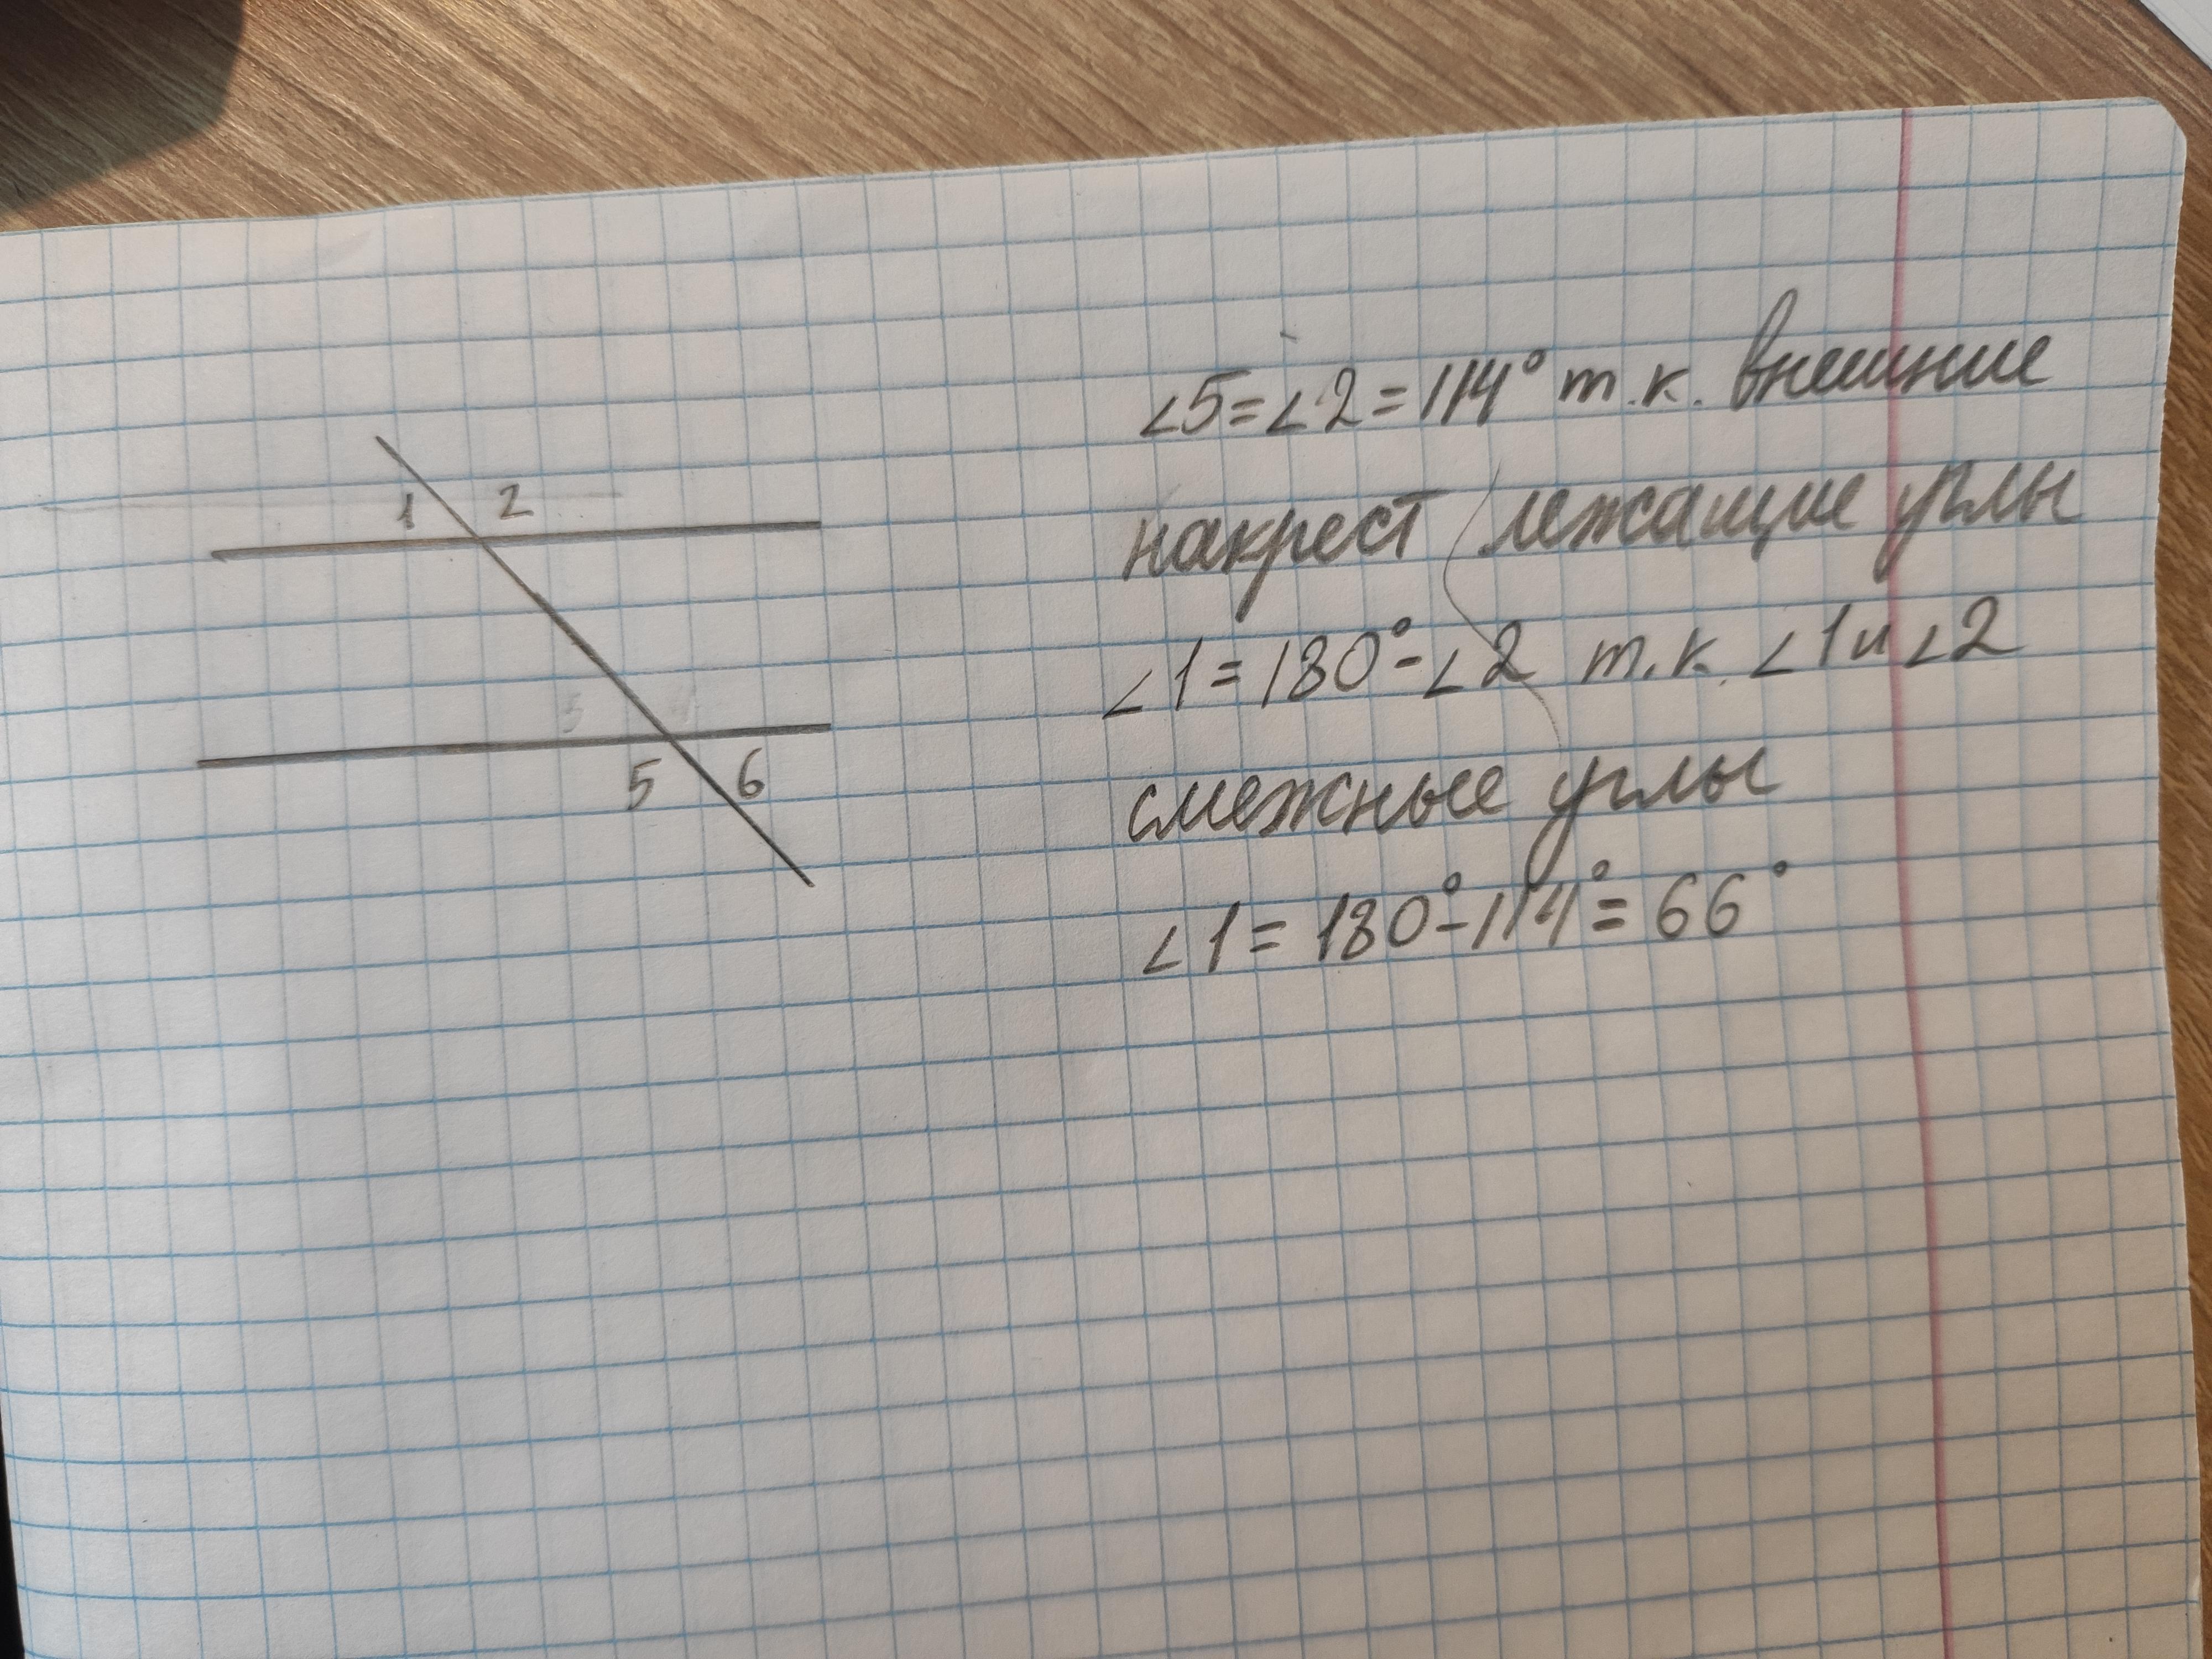 1 2
5 6
∠5=∠2=114° т.к. внешние
накрест лежащие углы
∠1=180°-∠2 т.к. ∠1 и ∠2
смежные углы
∠1=180°-114°=66°